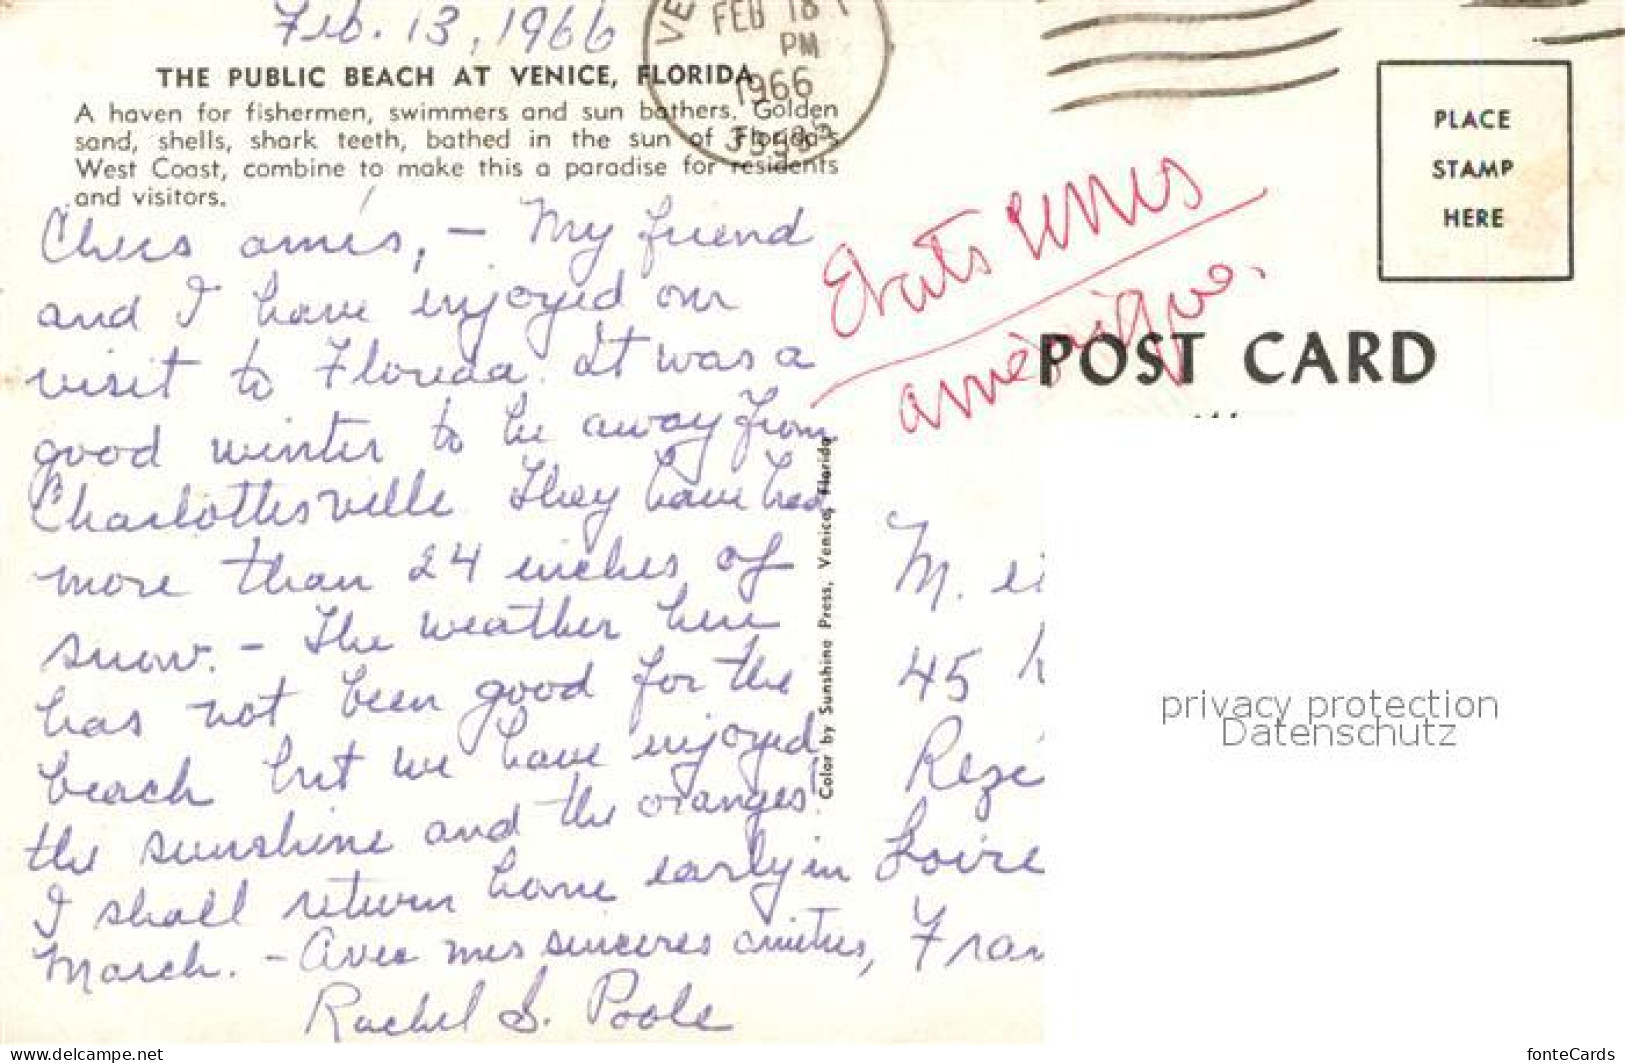 Feb. 13, 1966
VE
FEB 18
PM
1966
THE PUBLIC BEACH AT VENICE, FLORIDA
A haven for fishermen, swimmers and sun bathers. Golden
sand, shells, shark teeth, bathed in the sun of Florida's
West Coast, combine to make this a paradise for residents
and visitors.
Chers amis, - My friend
and I have enjoyed our
visit to Florida. It was a
good winter to be away from
Charlottesville. They have had
more than 24 inches of
snow. - The weather here
has not been good for the
beach but we have enjoyed
the sunshine and the oranges!
I shall return home early in
March. - Avec mes sincères amitiés,
Rachel S. Poole
Color by Sunshine Press, Venice, Florida
Etats Unis
amérique.
PLACE
STAMP
HERE
POST CARD
M. et
45
Rezé
Loire
Fran
privacy protection
Datenschutz
www.delcampe.net
fonteCards